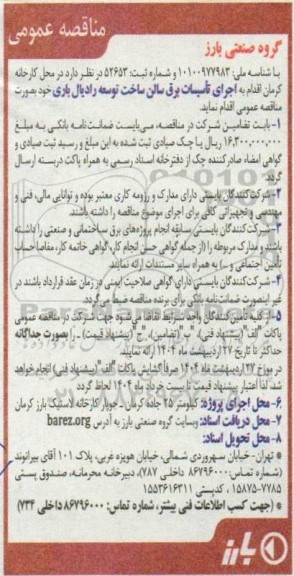 مناقصه عمومی
گروه صنعتی بارز
با شناسه ملی: ۱۰۱۰۰۹۷۷۹۸۳ و شماره ثبت: ۵۲۶۵۳ در نظر دارد در محل کارخانه
کرمان اقدام به اجرای تأسیسات برق سالن ساخت توسعه رادیال باری خود بصورت
مناقصه عمومی اقدام نماید.
۱- بابت تضامین شرکت در مناقصه، می‌بایست ضمانت‌نامه بانکی به مبلغ
۱۶,۳۰۰,۰۰۰,۰۰۰ ریال یا چک صیادی ثبت شده به این مبلغ و رسید ثبت صیادی و
گواهی امضاء صادرکننده چک از دفترخانه اسناد رسمی به همراه پاکت دربسته ارسال
گردد.
۲- شرکت‌کنندگان بایستی دارای مدارک و رزومه کاری معتبر بوده و توانایی مالی، فنی و
مهندسی و تجهیزاتی کافی برای اجرای موضوع مناقصه را داشته باشند.
۳- شرکت‌کنندگان بایستی سابقه انجام پروژه‌های برق ساختمانی و صنعتی را داشته
باشند و مدارک مربوطه را (از جمله گواهی حسن انجام کار، گواهی خاتمه کار، مفاصا حساب
تأمین اجتماعی و ...) به همراه سایر مستندات ارائه نمایند.
۴- شرکت‌کنندگان بایستی دارای گواهی صلاحیت ایمنی در زمان عقد قرارداد باشند در
غیر اینصورت ضمانت‌نامه بانکی برای برنده مناقصه ضبط می‌گردد.
۵- از کلیه تأمین‌کنندگان واجد شرایط تقاضا می‌شود جهت شرکت در مناقصه عمومی
پاکات "الف" (پیشنهاد فنی)، "ب" (تضامین)، "ج" (پیشنهاد قیمت) را بصورت جداگانه
حداکثر تا تاریخ ۲۷ اردیبهشت ماه ۱۴۰۴ ارائه نمایند.
در مورخ ۲۷ اردیبهشت ماه ۱۴۰۴ صرفاً گشایش پاکات "الف" (پیشنهاد فنی) انجام خواهد
شد، لذا اعتبار پیشنهاد قیمت تا بیست خرداد ماه ۱۴۰۴ لحاظ گردد
۶- محل اجرای پروژه: کیلومتر ۲۵ جاده کرمان - جوپار کارخانه لاستیک بارز کرمان
۷- محل دریافت اسناد: وبسایت گروه صنعتی بارز به آدرس barez.org
۸- محل تحویل اسناد:
تهران - خیابان سهروردی شمالی، خیابان هویزه غربی، پلاک ۱۰۱ آقای بیرانوند
(شماره تماس: ۸۶۷۹۶۰۰۰ داخلی ۷۸۷)، دبیرخانه محرمانه، صندوق پستی
۷۷۸۵-۱۵۸۷۵ ، کدپستی ۱۵۵۳۶۱۶۳۱۱
(جهت کسب اطلاعات فنی بیشتر، شماره تماس: ۸۶۷۹۶۰۰۰ داخلی ۷۳۴)
بارز